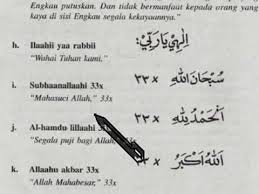 Engkau putuskan. Dan tidak bermanfaat kepada orang yang
kaya di sisi Engkau segala kekayaannya."
h. Ilaahii yaa rabbii اِلٰهِيْ يَا رَبِّيْ:
"Wahai Tuhan kami."
i. Subhaanallaahi 33x سُبْحَانَ اللهِ ٣٣ x
"Mahasuci Allah," 33x
j. Al-hamdu lillaahi اَلْحَمْدُ لِلّٰهِ ٣٣ x
"Segala puji bagi Allah,"
k. Allaahu akbar 33x اَللهُ اَكْبَرُ ٣٣ x
"Allah Mahabesar," 33x